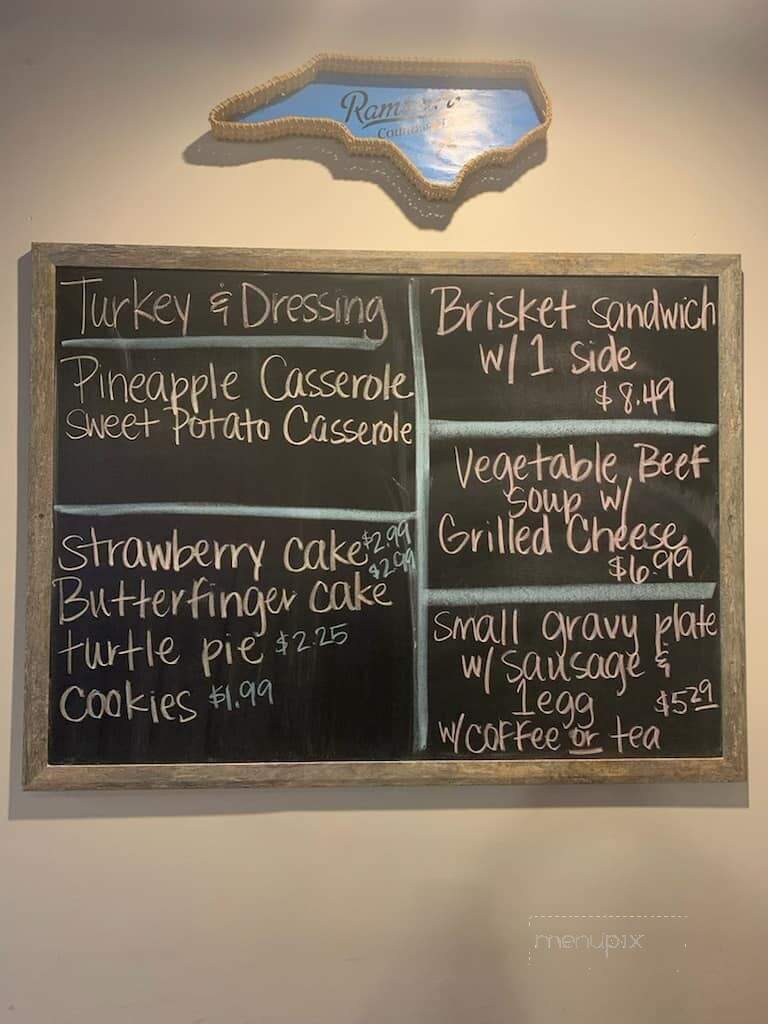 Turkey & Dressing
Pineapple Casserole
Sweet Potato Casserole
Strawberry Cake $2.99
$2.99
Butterfinger Cake
turtle pie $2.25
Cookies $1.99
Brisket sandwich
w/ 1 side
$8.49
Vegetable Beef
Soup w/
Grilled Cheese
$6.99
Small gravy plate
w/ Sausage &
1 egg $5.29
w/ COFFee or tea
menupix